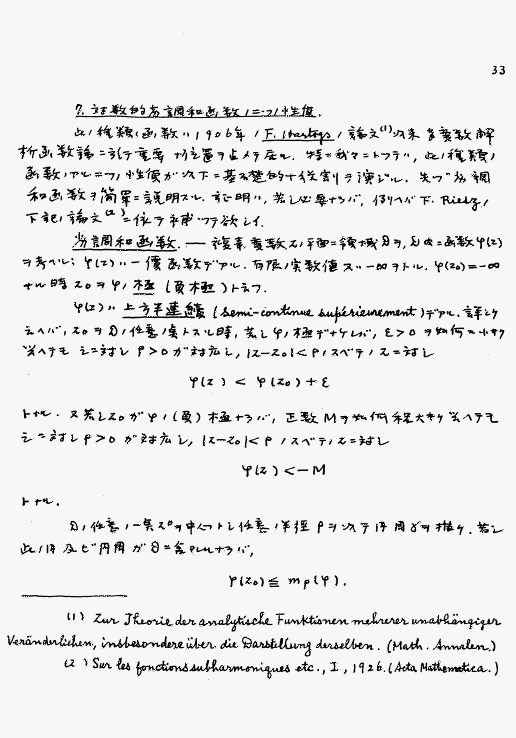 33
7. 対数的劣調和函数ノ二三ノ性質.
此ノ種類ノ函数ハ1906年ノF. Hartogsノ論文(1)以来多変数解
析函数論ニ於テ重要ナ位置ヲ占メテ居ル. 特ニ我々ニトッテハ, 此ノ種類ノ
函数ノアル一ツノ性質ガ以下ニ基礎的ナ役割ヲ演ジル. 先ヅ劣調
和函数ヲ簡単ニ説明スル. 証明ハ, 若シ必要ナラバ, 例ヘバF. Rieszノ
下記ノ論文(2)ニ依テ補ッテ欲シイ.
劣調和函数. — 複素変数zノ平面ニ領域Dヲ, D内ニ函数φ(z)
ヲ考ヘル; φ(z)ハ一價函数デアル. 有限ノ実数値又ハ−∞ヲトル. φ(z₀)=−∞
ナル時z₀ヲφノ極 (負極) ト云フ.
φ(z)ハ上方半連続 (semi-continue supérieurement) デアル. 詳シク
云ヘバ, z₀ヲDノ任意ノ点トスル時, 若シφノ極デナケレバ, ε>0ヲ如何ニ小サク
与ヘテモ之ニ対シρ>0ガ対応シ, |z−z₀|<ρノスベテノzニ対シ
φ(z) < φ(z₀) + ε
トナル. 又若シz₀ガφノ(負)極ナラバ, 正数Mヲ如何程大キク与ヘテモ
之ニ対シρ>0ガ対応シ, |z−z₀|<ρノスベテノzニ対シ
φ(z) < −M
トナル.
D ノ任意ノ一点z₀ヲ中心トシ任意ノ半径ρヲ以テ円周γヲ描ク. 若シ
此ノ円及ビ円周ガDニ含マレルナラバ,
φ(z₀) ≦ mρ(φ).
(1) Zur Theorie der analytische Funktionen mehrerer unabhängiger
Veränderlichen, insbesondere über die Darstellung derselben. (Math. Annalen.)
(2) Sur les fonctions subharmoniques etc., I, 1926. (Acta Mathematica.)